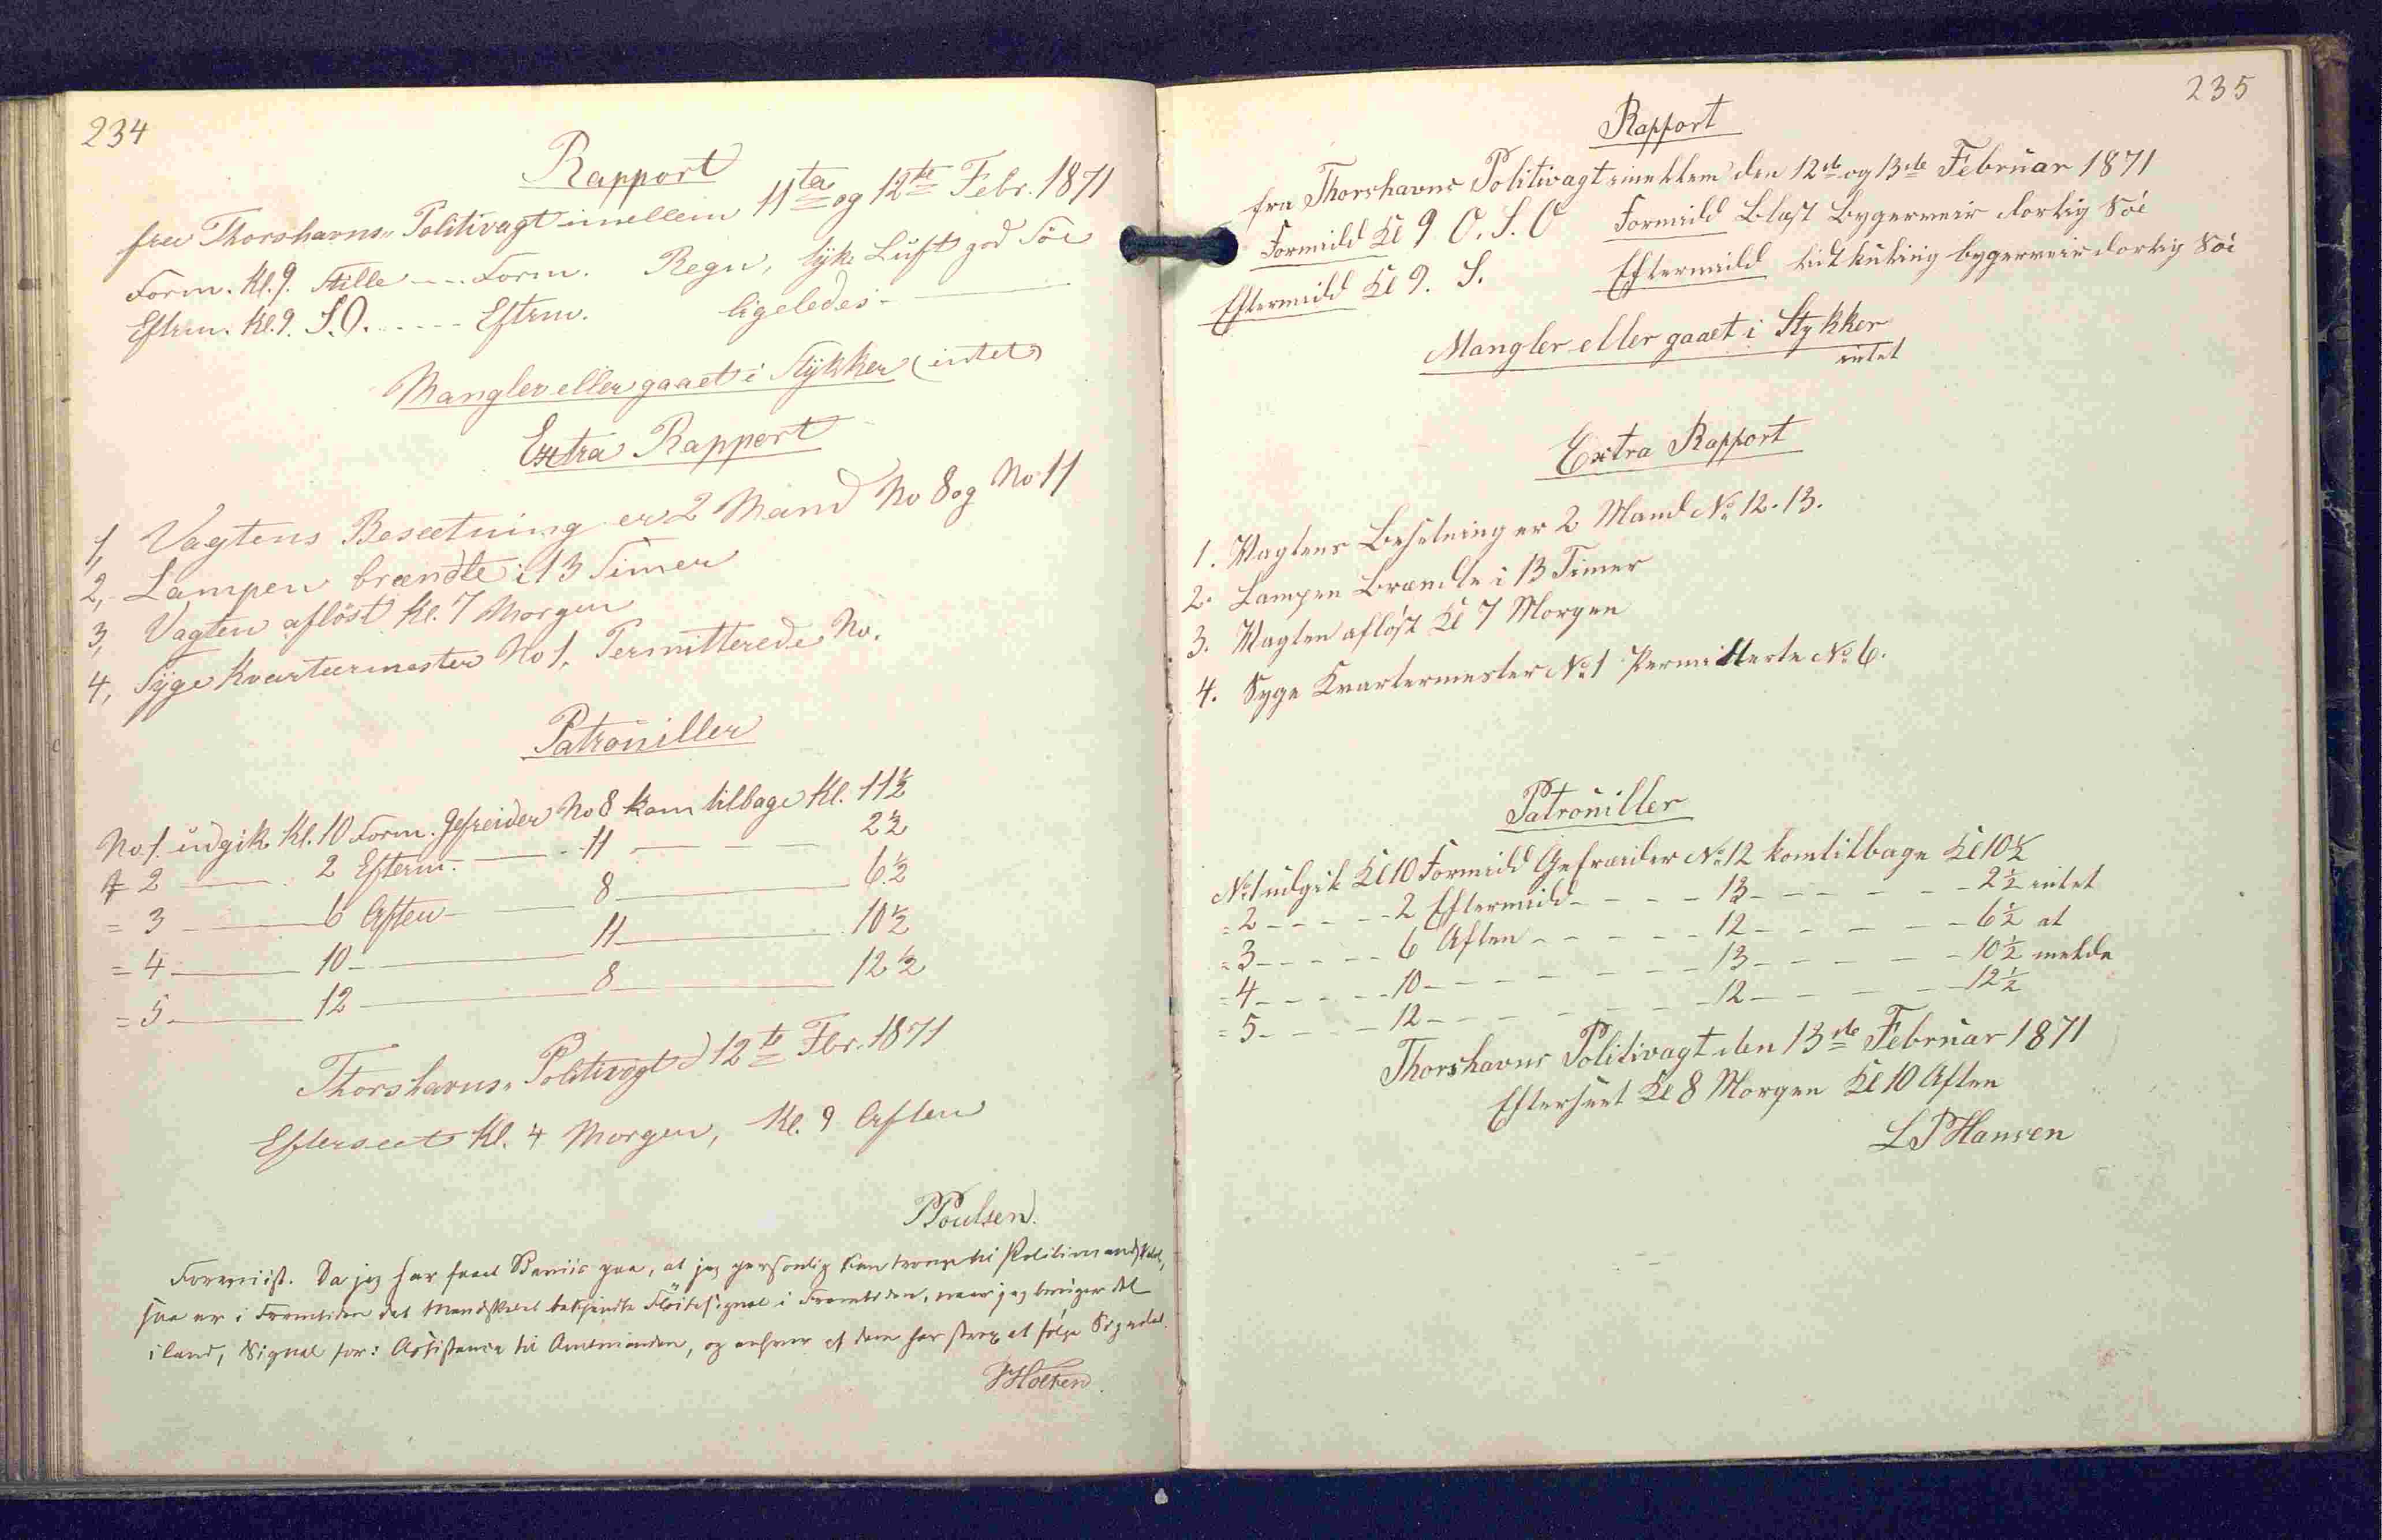 234
Rapport
fra Thorshavns Politivagt imellem 11te og 12te Febr. 1871
Form. Kl. 9. Stille --- Form. Regn, tyk Luft god Söe
Eftrm. Kl. 9. S.O. ----- Eftrm. ligeledes -
Mangler eller gaaet i Stykker (intet)
Extra Rapport
1, Vagtens Besætning er 2 Mand No 8 og No 11
2, Lampen brændte i 13 Timer
3, Vagten aflöst Kl. 7 Morgen
4, Syge Kvarteermester No 1, Permitterede No.
Patrouiller
No. 1. udgik Kl. 10 Form. Gefreider No 8 kom tilbage Kl. 11½
= 2 — 2 Efterm. — 11 — — — 2½
= 3 — 6 Aften — 8 — 6½
= 4 — 10 — 11 — 10½
= 5 — 12 — 8 — 12½
Thorshavns Politivagt d 12te Fbr. 1871
Efterseet Kl. 4 Morgen, Kl. 9 Aften
PPoulsen.
Da jeg har faaet Beviis paa, at jeg personlig kan trænge til Politimandskabet,
saa er i Fremtiden det Mandskabet bekjendte Flöitesignal i Fremtiden, naar jeg bruger det
i land, Signal for: Assistance til Amtmanden, og enhver af dem har strax at følge Signalet.
HHolten.
235
Rapport
fra Thorshavns Politivagt imellem den 12te og 13de Februar 1871
Formidd Kl 9 O. S. O Formidd Blæst Bygerveir dorlig Söe
Eftermidd Kl 9. S. Eftermidd lidt kuling bygerveir dorlig Söe
Mangler eller gaaet i Stykker
intet
Extra Rapport
1. Vagtens Besetning er 2 Mand No 12. 13.
2. Lampen Brændte i 13 Timer
3. Vagten aflöst Kl 7 Morgen
4. Syge Kvartermester No 1 Permitterte No 6.
Patrouiller
No 1 udgik Kl 10 Formidd Gefreider No 12 kom tilbage Kl 10½
= 2 - - - - 2 Eftermidd - - - - 13 - - - - - 2½ intet
= 3 - - - - 6 Aften - - - - - 12 - - - - - 6½ at
= 4 - - - - 10 - - - - - - - 13 - - - - - 10½ melde
= 5 - - - - 12 - - - - - - - 12 - - - - - 12½
Thorshavns Politivagt den 13de Februar 1871
Efterseet Kl 8 Morgen Kl 10 Aften
LPHansen